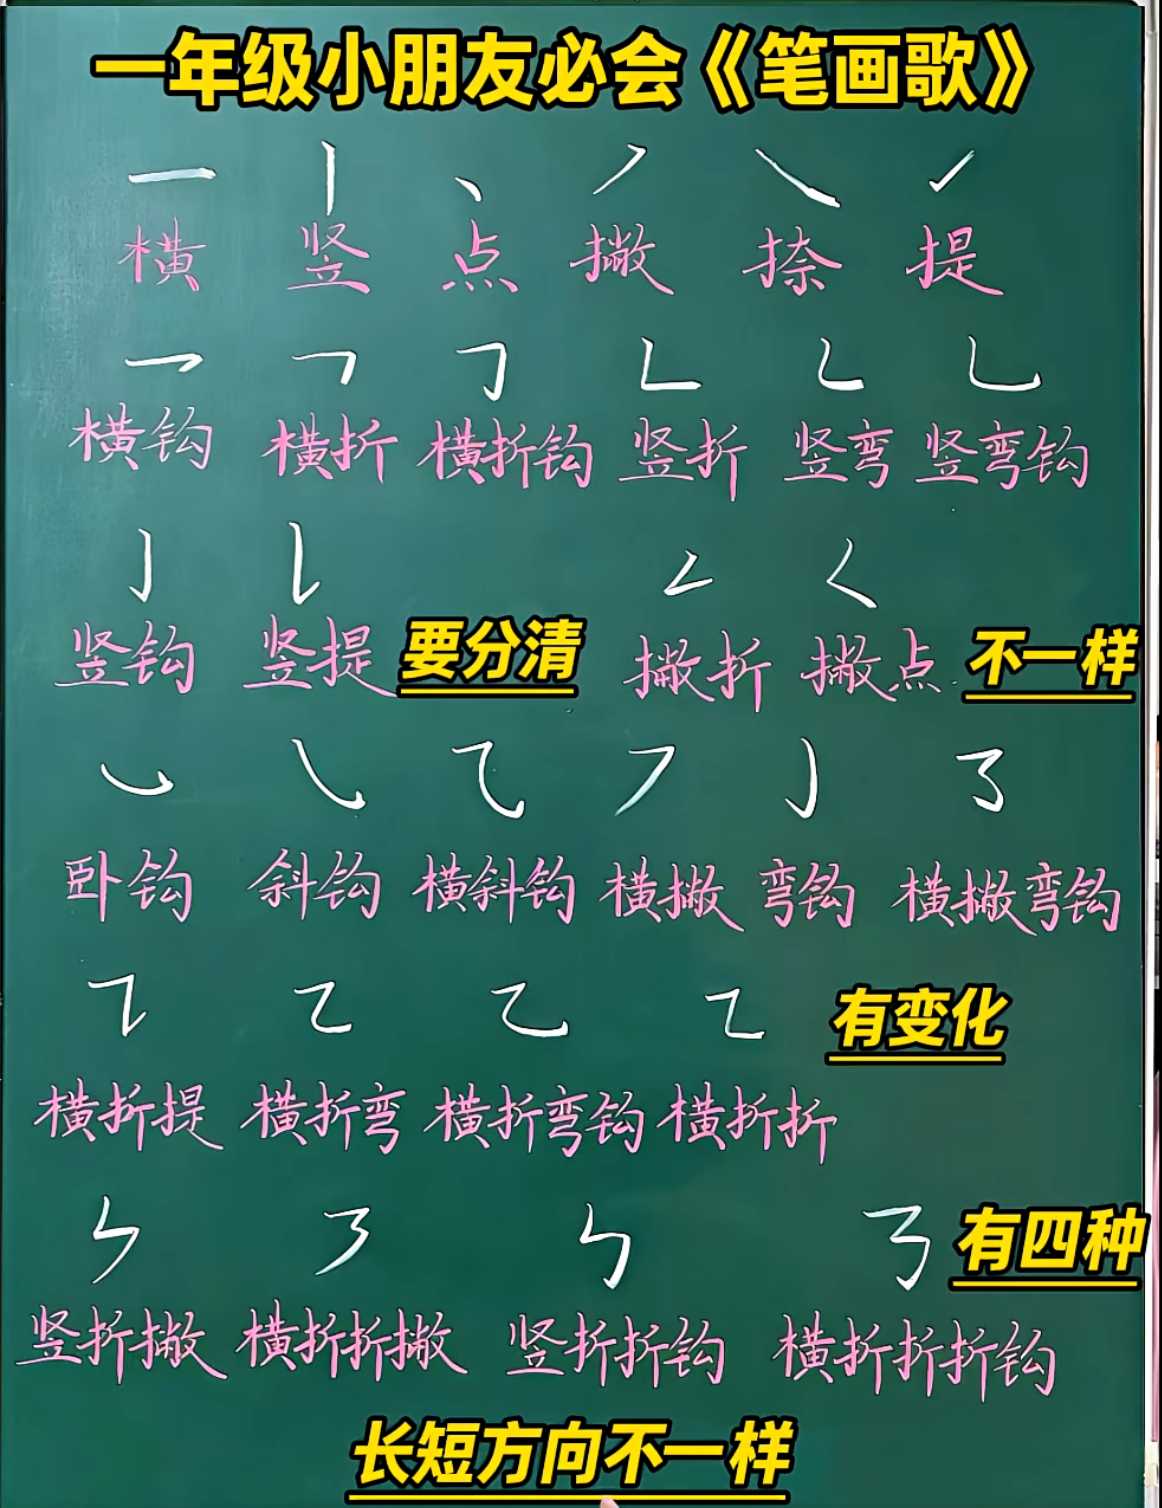 一年级小朋友必会《笔画歌》
横 竖 点 撇 捺 提
横钩 横折 横折钩 竖折 竖弯 竖弯钩
竖钩 竖提 要分清 撇折 撇点 不一样
卧钩 斜钩 横斜钩 横撇 弯钩 横撇弯钩
有变化
横折提 横折弯 横折弯钩 横折折
有四种
竖折撇 横折折撇 竖折折钩 横折折折钩
长短方向不一样